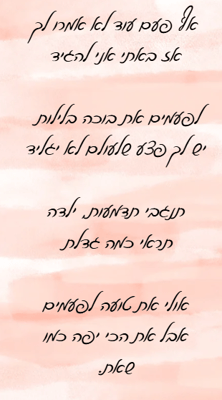 אף פעם עוד לא אמרו לך
אז באתי אני להגיד
לפעמים את בוכה בלילות
יש לך פצע שלעולם לא יגליד
תנגבי תדמעות, ילדה
תראי כמה גדלת
אולי את טועה לפעמים
אבל את הכי יפה כמו
שאת.